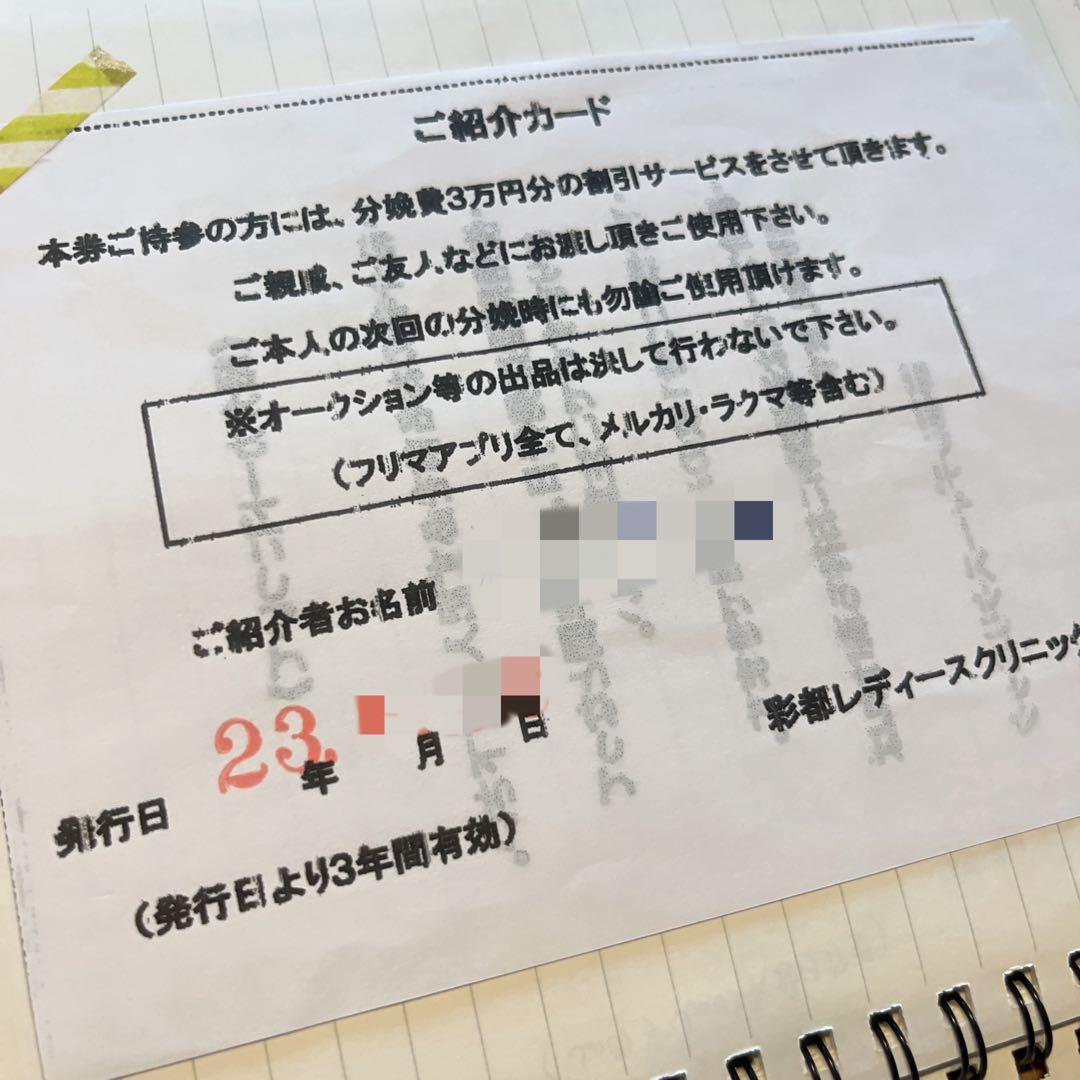 ご紹介カード
本券ご持参の方には、分娩費3万円分の割引サービスをさせて頂きます。
ご親戚、ご友人などにお渡し頂きご使用下さい。
ご本人の次回の分娩時にも勿論ご使用頂けます。
※オークション等の出品は決して行わないで下さい。
（フリマアプリ全て、メルカリ・ラクマ等含む）
ご紹介者お名前
彩都レディースクリニック
発行日 23年 月 日
（発行日より3年間有効）